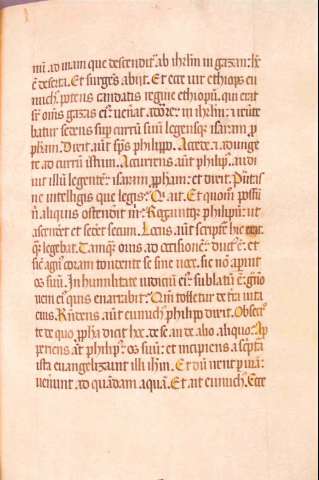 nū ad viam que descendit ab ihrlm in gazam: hec
ē deserta. Et surgēs abiit. Et ecce vir ethiops eu
nuch potens candacis regine ethiopū. qui erat
sup omīs gazas eiꝰ: veniat adorare in ihrlm: ⁊ reverte
batur sedens sup currū suū legensqꝫ isaiam p
phetam. Dixit aūt sps philippo. Accede ⁊ adiunge
te ad currū istum. Accurrens aūt philipꝰ. audi
vit illū legentē: isaiam ꝓpham: et dixit. Putas
ne intelligis que legis? Qui ait. Et quomō possū
n̄ aliquis ostenderit m̄. Rogavitqꝫ philipū: ut
ascenderet et sederet secum. Locus aūt scripture hic erat.
qē legebat. Tamqꝫ ovis ad occisionē: ductꝰ ē: et
sic agnꝰ coram tondente se sine voce. sic nō aperuit
os suū. In humilitate iudiciū eiꝰ: sublatū ē. gn̄o
nem eiꝰ quis enarrabit? Qm̄ tolletur de t̄ra vita
eius. Rn̄dens aūt eunuchꝰ philipo dixit. Obsecro
te de quo ꝓpha dicit hoc. de se an de alio aliquo. Ap
periens aūt philipꝰ: os suū: et incipiens a scripta
ista evangelizavit illi ihm. Et dū irent p viam:
venerunt ad quādam aquā. Et ait eunuchꝰ. Ecce